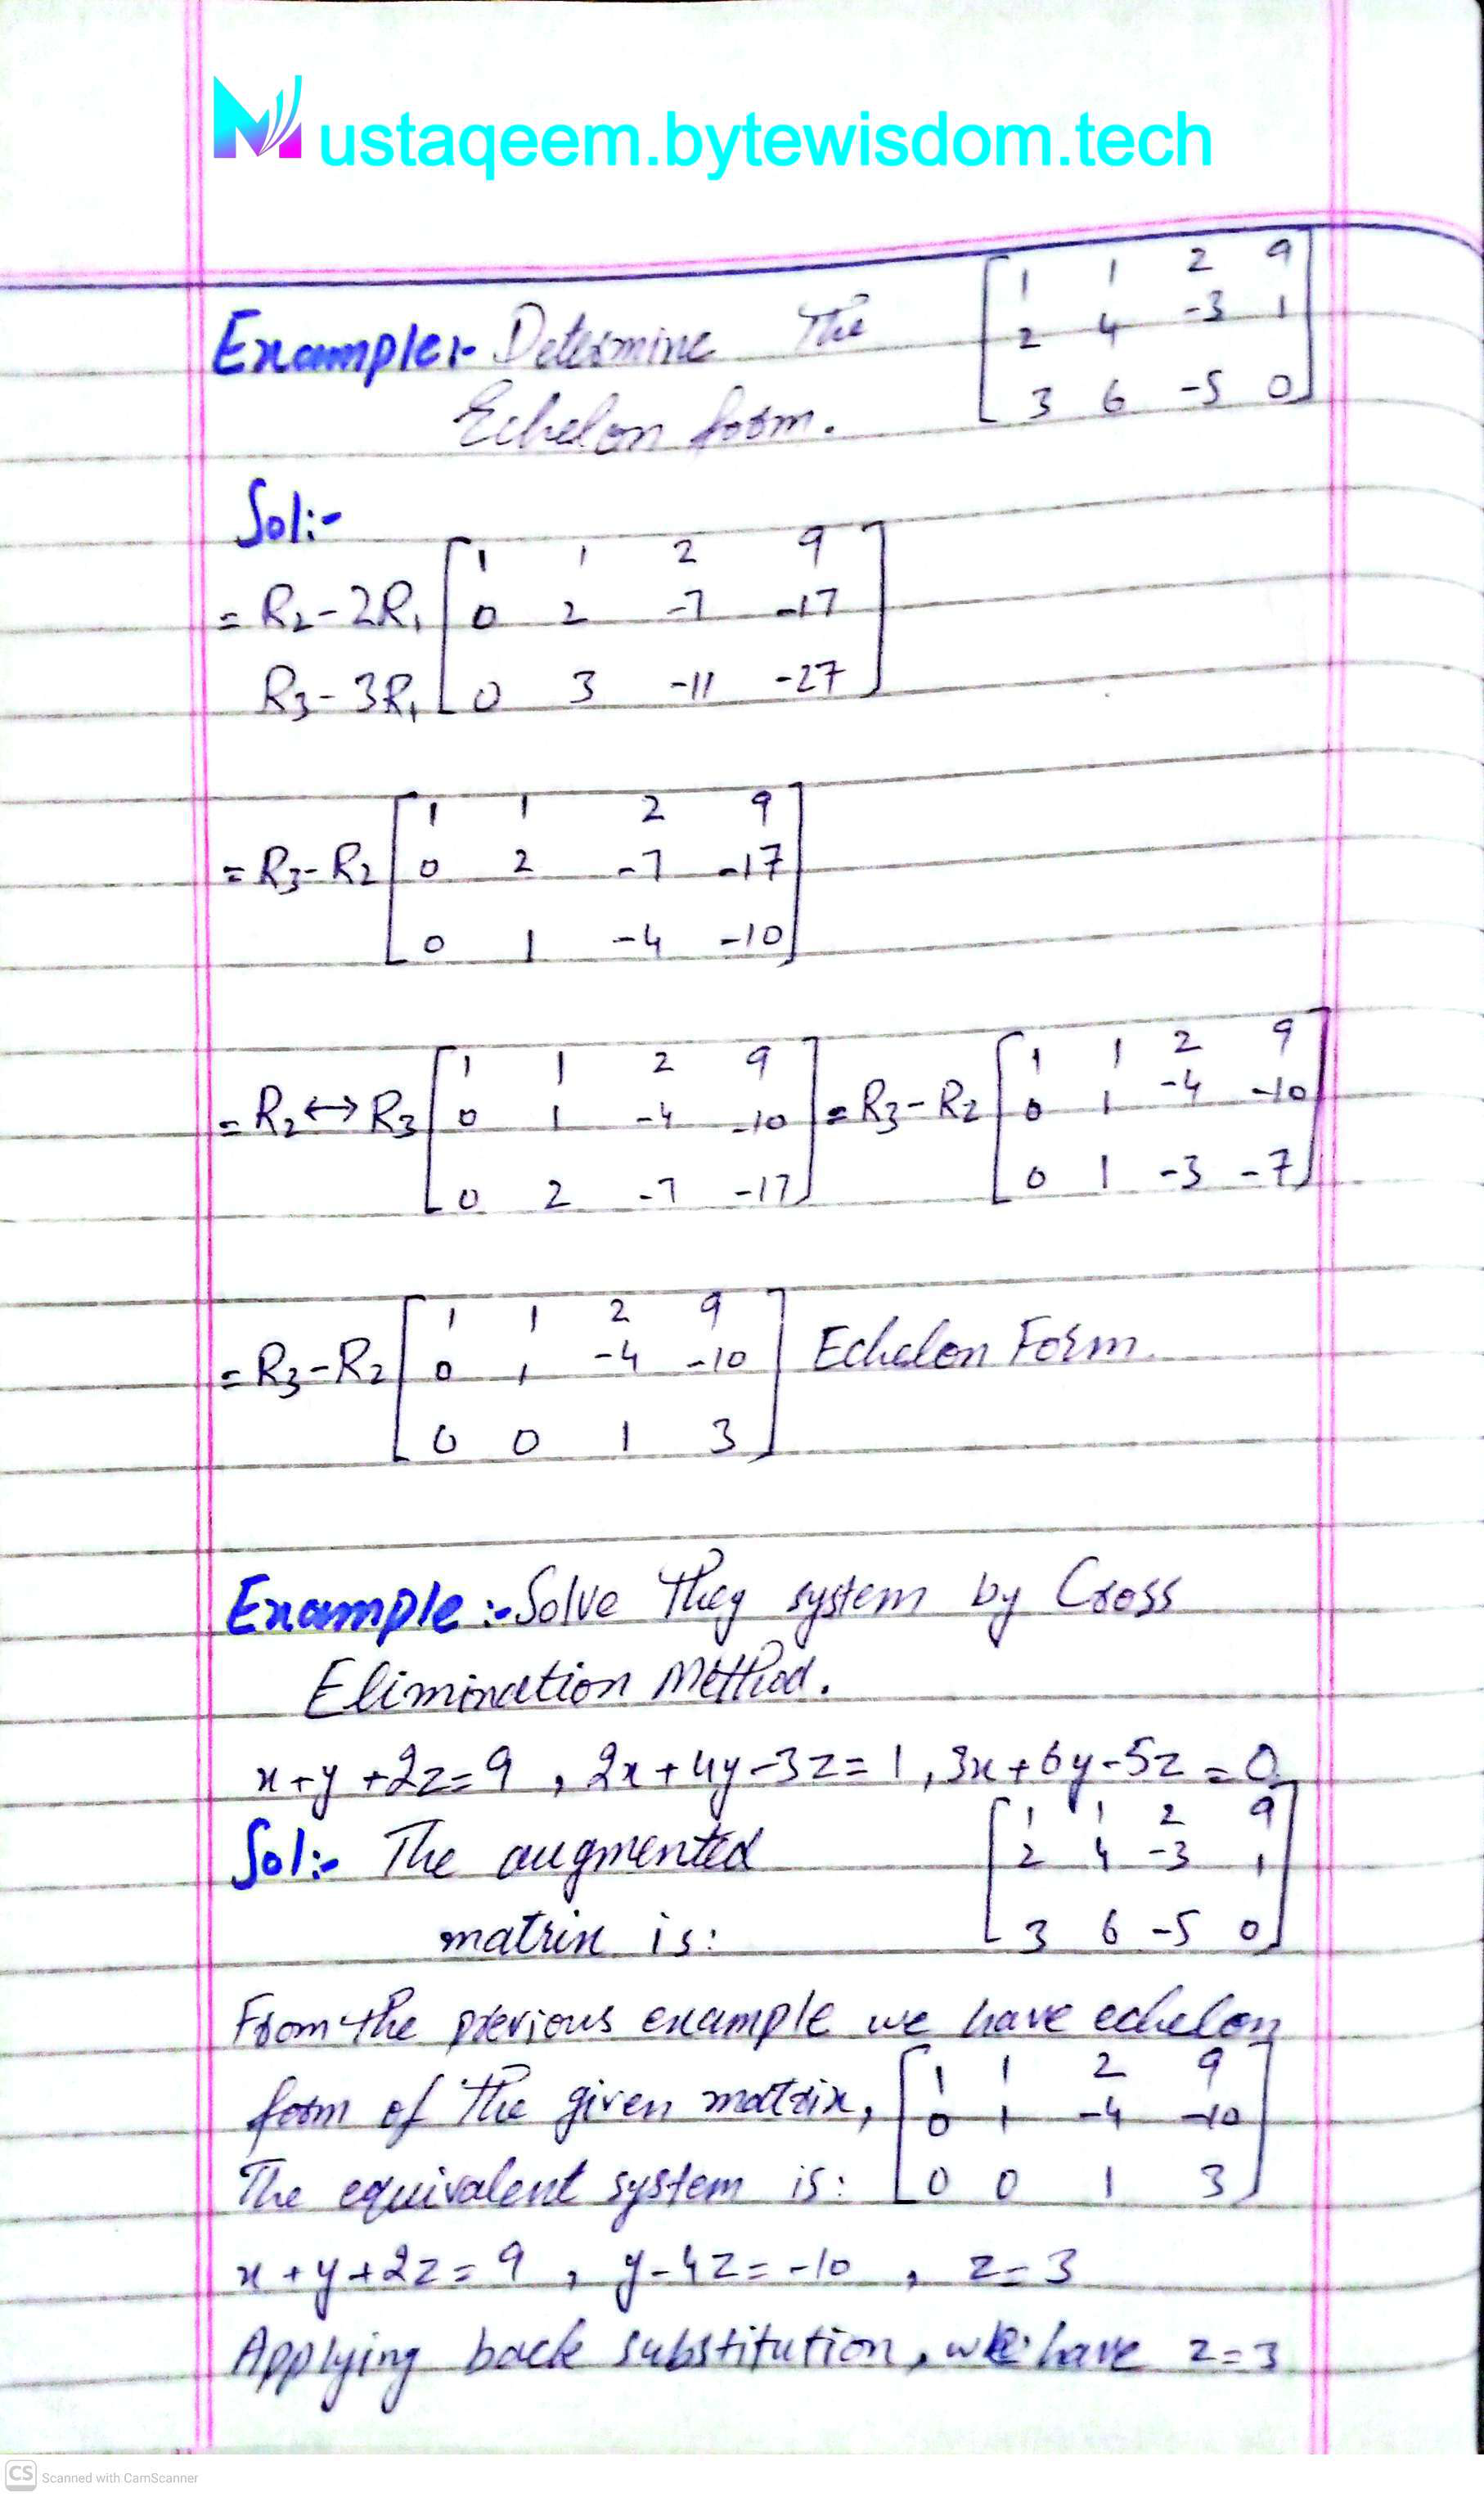 Mustaqeem.bytewisdom.tech
Example:- Determine The
Echelon form.
[1 1 2 9
2 4 -3 1
3 6 -5 0]
Sol:-
= R2-2R1
R3-3R1
[1 1 2 9
0 2 -7 -17
0 3 -11 -27]
= R3-R2
[1 1 2 9
0 2 -7 -17
0 1 -4 -10]
= R2↔R3
[1 1 2 9
0 1 -4 -10
0 2 -7 -17]
= R3-R2
[1 1 2 9
0 1 -4 -10
0 1 -3 -7]
= R3-R2
[1 1 2 9
0 1 -4 -10
0 0 1 3]
Echelon Form.
Example:- Solve They system by Cross
Elimination Method.
x+y+2z=9, 2x+4y-3z=1, 3x+6y-5z=0
Sol:- The augmented
matrix is:
[1 1 2 9
2 4 -3 1
3 6 -5 0]
From the previous example we have echelon
form of The given matrix,
The equivalent system is:
[1 1 2 9
0 1 -4 -10
0 0 1 3]
x+y+2z=9, y-4z=-10, z=3
Applying back substitution, we have z=3
CS Scanned with CamScanner